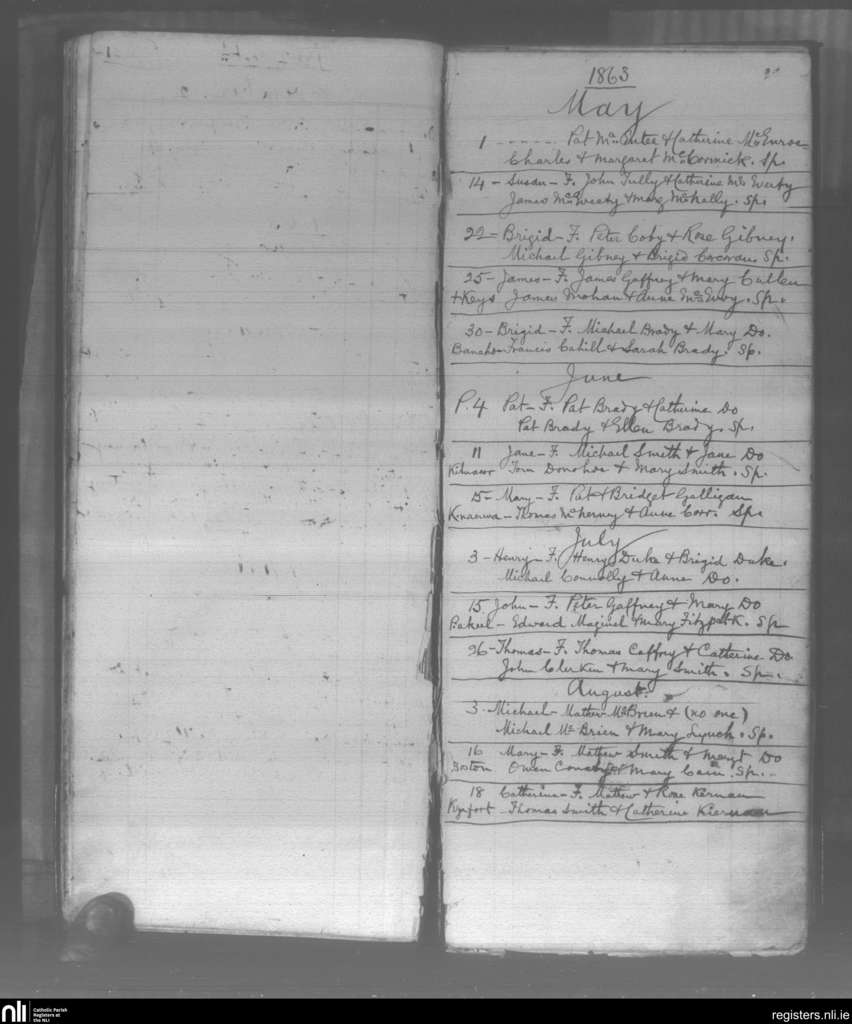 1863
May
1 - - - - - Pat McEntee & Catherine McEnroe
Charles & Margaret McCormick. Sp.
14 - Susan - F. John Tully & Catherine
James & Marg McNally. Sp.
22 - Brigid - F. Peter Coby & Rose Gibney.
Michael Gibney & Brigid Corcoran. Sp.
25 - James - F. James Gaffney & Mary Cullen
James Mohan & Anne McEvoy. Sp.
30 - Brigid - F. Michael Brady & Mary Do.
Francis Cahill & Sarah Brady. Sp.
June
P. 4 Pat - F. Pat Brady & Catherine Do
Pat Brady & Ellen Brady. Sp.
11 Jane - F. Michael Smith & Jane Do
Tom Donohoe & Mary Smith. Sp.
15 - Mary - F. Pat & Bridget Galligan
Thomas McKerney & Anne Corr. Sp.
July
3 - Henry - F. Henry Duke & Brigid Duke.
Michael Connolly & Anne Do.
15 John - F. Peter Gaffney & Mary Do
Edward & Mary Fitzpatk. Sp
26 - Thomas - F. Thomas Caffry & Catherine Do
John Clerkin & Mary Smith. Sp.
August.
3 - Michael - Mathew McBrien & (no one)
Michael Mc Brien & Mary Lynch. Sp.
16 Mary - F. Mathew Smith & Margt Do
Boston Owen & Mary Cain. Sp.
18 Catherine - F. Mathew & Rose Kernan
Thomas Smith & Catherine Kiernan
nli
Catholic Parish
Registers at
the NLI
registers.nli.ie